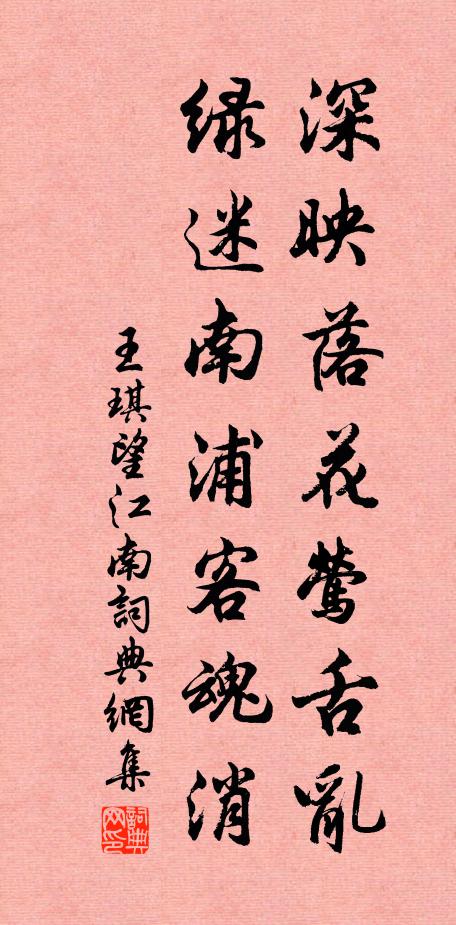 深映落花莺舌亂
绿迷南浦客魂消
王琪望江南詞典網集
詞典网印